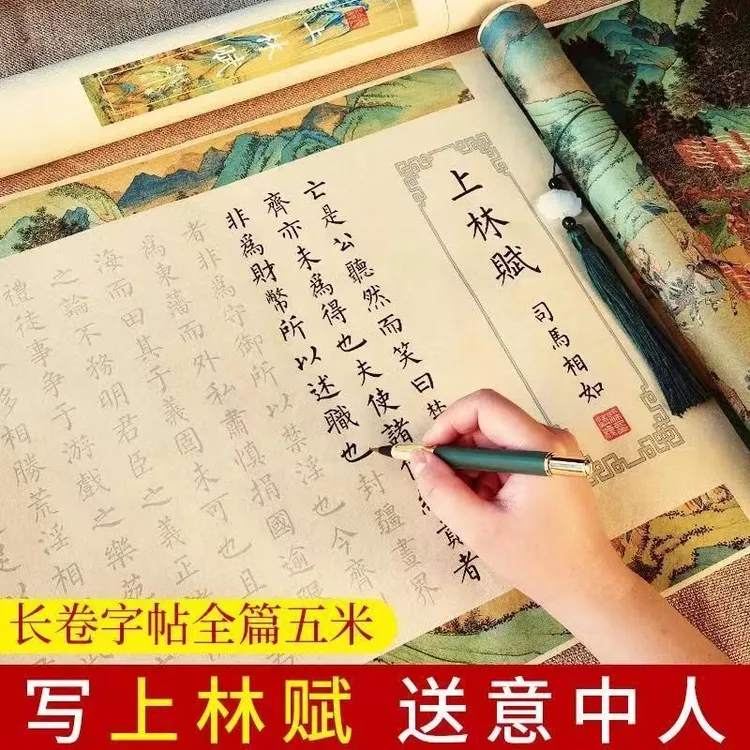 上林賦
上林賦
司馬相如
亡是公聽然而笑曰楚
齊亦未爲得也夫使諸貢者
非爲財幣所以述職也封疆畫界
者非爲守御所以禁淫也今齊
爲東藩而外私肅慎捐國逾限
海而田其于義固未可也且
之論不務明君臣之義正諸
禮徒事爭于游戲之樂苑
相勝荒淫相
长卷字帖全篇五米
写上林赋 送意中人